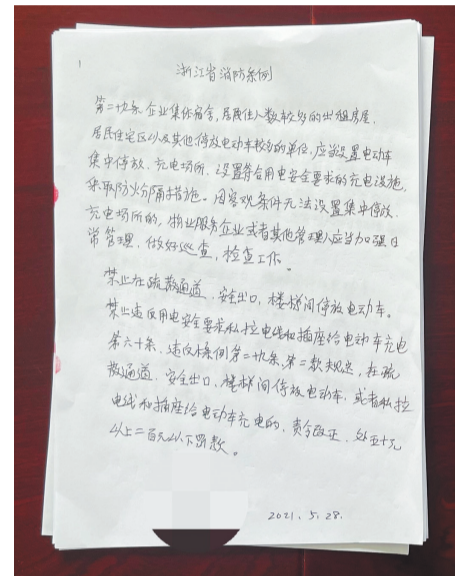 1
浙江省消防条例
第二九条 企业集体宿舍,居民住人数较多的出租房屋、
居民住宅区以及其他停放电动车较多的单位,应当设置电动车
集中停放、充电场所,设置符合用电安全要求的充电设施,
采取防火分隔措施。因客观条件无法设置集中停放、
充电场所的,物业服务企业或者其他管理人应当加强日
常管理,做好巡查,检查工作。
禁止在疏散通道、安全出口,楼梯间停放电动车。
禁止违反用电安全要求私拉电线和插座给电动车充电
第六十条,违反本条例第二九条,第二款规定,在疏
散通道、安全出口、楼梯间停放电动车,或者私拉
电线和插座给电动车充电的,责令改正,处五十元
以上二百元以下罚款。
2021.5.28.